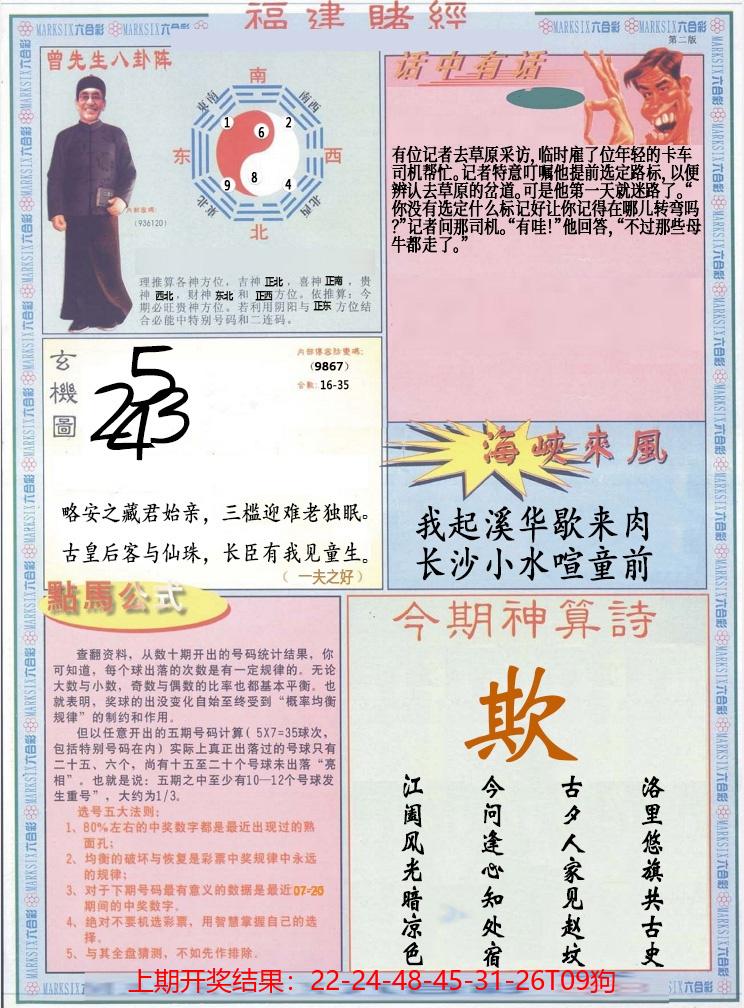 福建賭經
MARKSIX六合彩 MARKSIX六合彩 MARKSIX六合彩 MARKSIX六合彩
第二版
曾先生八卦阵
南
东南
西南
1
2
6
东
西
9
8
4
东北
西北
北
内部密碼:
(936120)
理推算各神方位，吉神 正北，喜神 正南，贵
神 西北，财神 东北 和 正西 方位。依推算：今
期必旺贵神方位。若利用阴阳与 正东 方位结
合必能中特别号码和二连码。
话中有话
有位记者去草原采访, 临时雇了位年轻的卡车
司机帮忙。记者特意叮嘱他提前选定路标, 以便
辨认去草原的岔道。可是他第一天就迷路了。“
你没有选定什么标记好让你记得在哪儿转弯吗
?”记者问那司机。“有哇!”他回答, “不过那些母
牛都走了。”
玄機圖
5
243
(9867)
合數: 16-35
略安之藏君始亲，三槛迎难老独眠。
古皇后客与仙珠，长臣有我见童生。
（ 一夫之好）
海峽來風
我起溪华歇来肉
长沙小水喧童前
點馬公式
查翻资料，从数十期开出的号码统计结果，你
可知道，每个球出落的次数是有一定规律的。无论
大数与小数，奇数与偶数的比率也都基本平衡。也
就表明，奖球的出没变化自始至终受到“概率均衡
规律”的制约和作用。
但以任意开出的五期号码计算( 5X7=35球次，
包括特别号码在内) 实际上真正出落过的号球只有
二十五、六个，尚有十五至二十个号球未出落“亮
相”。也就是说：五期之中至少有10—12个号球发
生重号”，大约为1/3。
选号五大法则：
1、80%左右的中奖数字都是最近出现过的熟
面孔；
2、均衡的破坏与恢复是彩票中奖规律中永远
的规律；
3、对于下期号码最有意义的数据是最近07-20
期间的中奖数字。
4、绝对不要机选彩票，用智慧掌握自己的选
择。
5、与其全盘猜测，不如先作排除.
今期神算詩
欺
洛里悠旗共古史
古夕人家见赵坟
今问逢心知处宿
江阁风光暗凉色
上期开奖结果：22-24-48-45-31-26T09狗